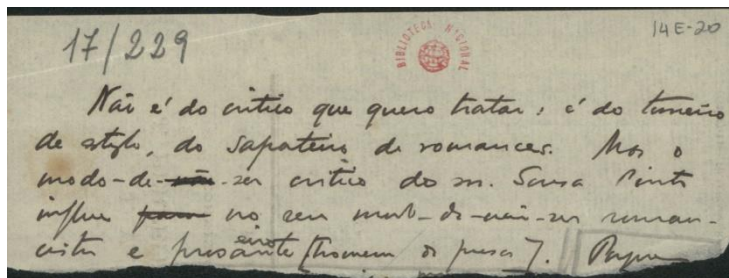 17/229
14E-20
BIBLIOTECA NACIONAL
Não é do critico que quero tratar; é do torneiro
de stylo, do sapateiro de romances. Mas o
modo-de-não-ser critico do sr. Sousa Pinto
influe para no seu modo-de-não-ser roman-
cista e prosante [homem de prosa].